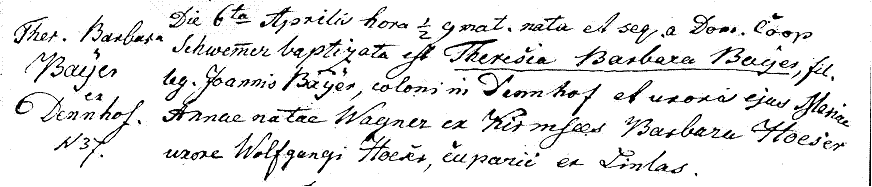 Ther. Barbara
Baÿer
er
Dennhof.
N 37.
Die 6ta Aprilis hora 1/2 9 mat. nata et seq. a Dom. Coop
Schwemer baptizata est Theresia Barbara Baÿer, fil.
leg. Joannis Baÿer, coloni in Dennhof et uxoris ejus Mariae
Annae natae Wagner ex Kirmsees Barbara Hoeser
uxore Wolfgangi Hoeser, cuparii ex Tinlas.